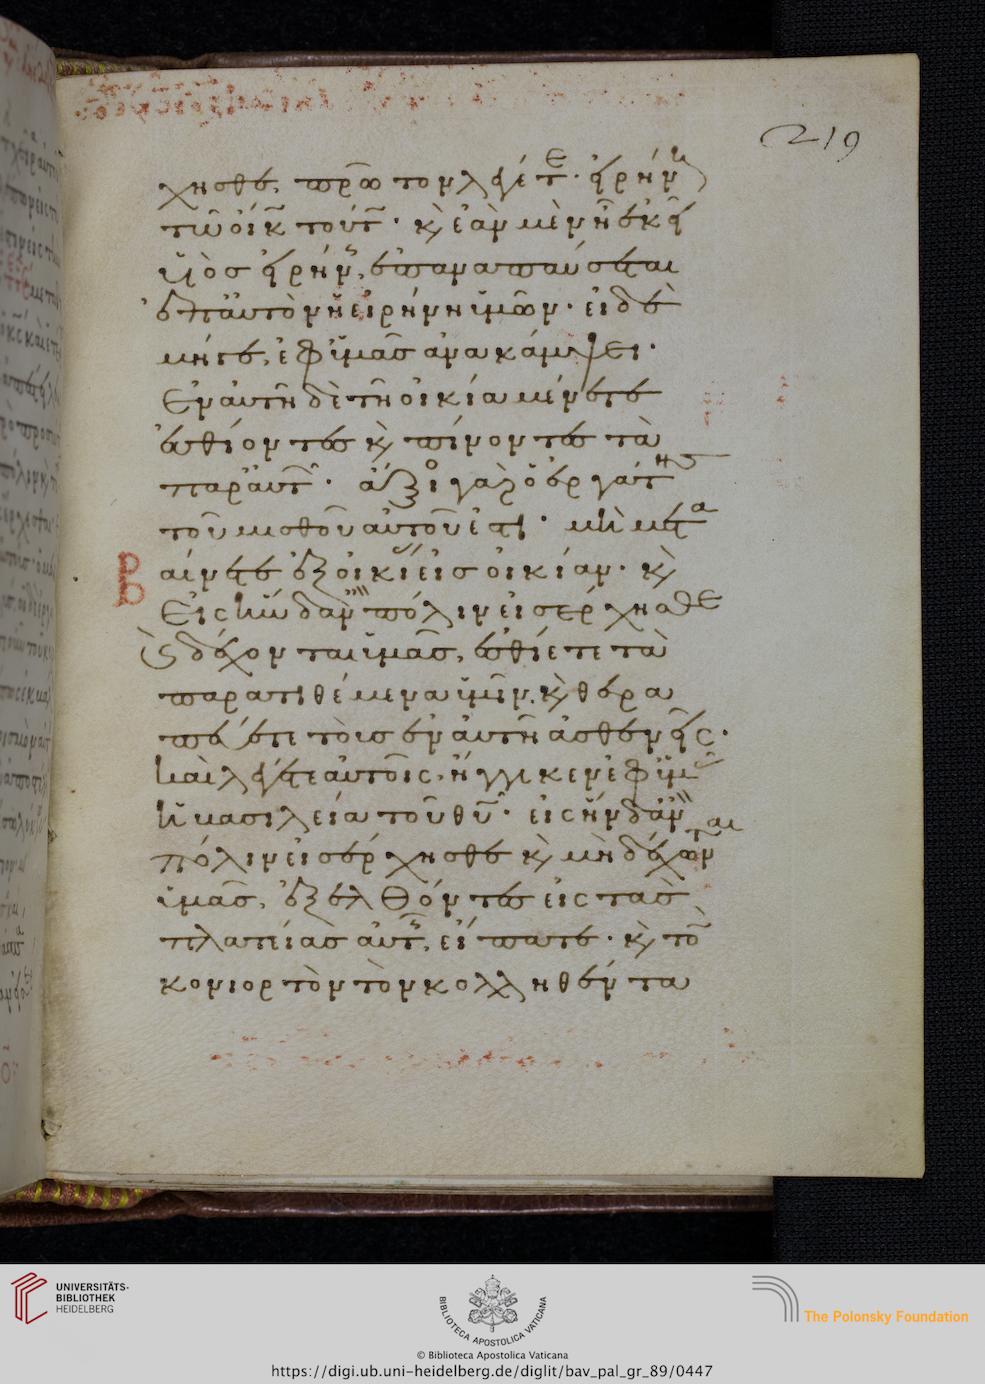 219
χησθε, πρῶτον λέγετε· εἰρήνη
τῶ οἴκω τούτω· κ ἐὰν μὲν ἦ ἐκεῖ
υἱὸσ εἰρήνησ, ἐπαναπαύσεται
ἐπ αὐτὸν ἡ εἰρήνη ὑμῶν· εἰ δὲ
μήγε, ἐφ ὑμᾶσ ἀνακάμψει·
Ἐν αὐτῆ δὲ τῆ οἰκία μένετε
ἐσθίοντεσ κ πίνοντεσ τὰ
παρ αὐτῶν· ἄξιοσ γὰρ ὁ ἐργάτησ
τοῦ μισθοῦ αὐτοῦ ἐστι· μὴ μετα
αίνετε ἐξ οἰκίασ εἰσ οἰκίαν· κ
Β
Εἰς ἣν δ ἂν πόλιν εἰσέρχησθε
κ δέχονται ὑμᾶσ, ἐσθίετε τὰ
παρατιθέμενα ὑμῖν, κ θερα
πεύετε τοὺσ ἐν αὐτῆ ἀσθενεῖς·
καὶ λέγετε αὐτοῖς, ἤγγικεν ἐφ ὑμᾶσ
ἡ βασιλεία τοῦ θυ· εἰς ἣν δ ἂν
πόλιν εἰσέρχησθε κ μὴ δέχωνται
ὑμᾶσ, ἐξελθόντεσ εἰς τὰσ
πλατείασ αὐτῆσ, εἴπατε· κ τὸν
κονιορτὸν τὸν κολληθέντα
UNIVERSITÄTS-
BIBLIOTHEK
HEIDELBERG
BIBLIOTECA APOSTOLICA VATICANA
The Polonsky Foundation
© Biblioteca Apostolica Vaticana
https://digi.ub.uni-heidelberg.de/diglit/bav_pal_gr_89/0447